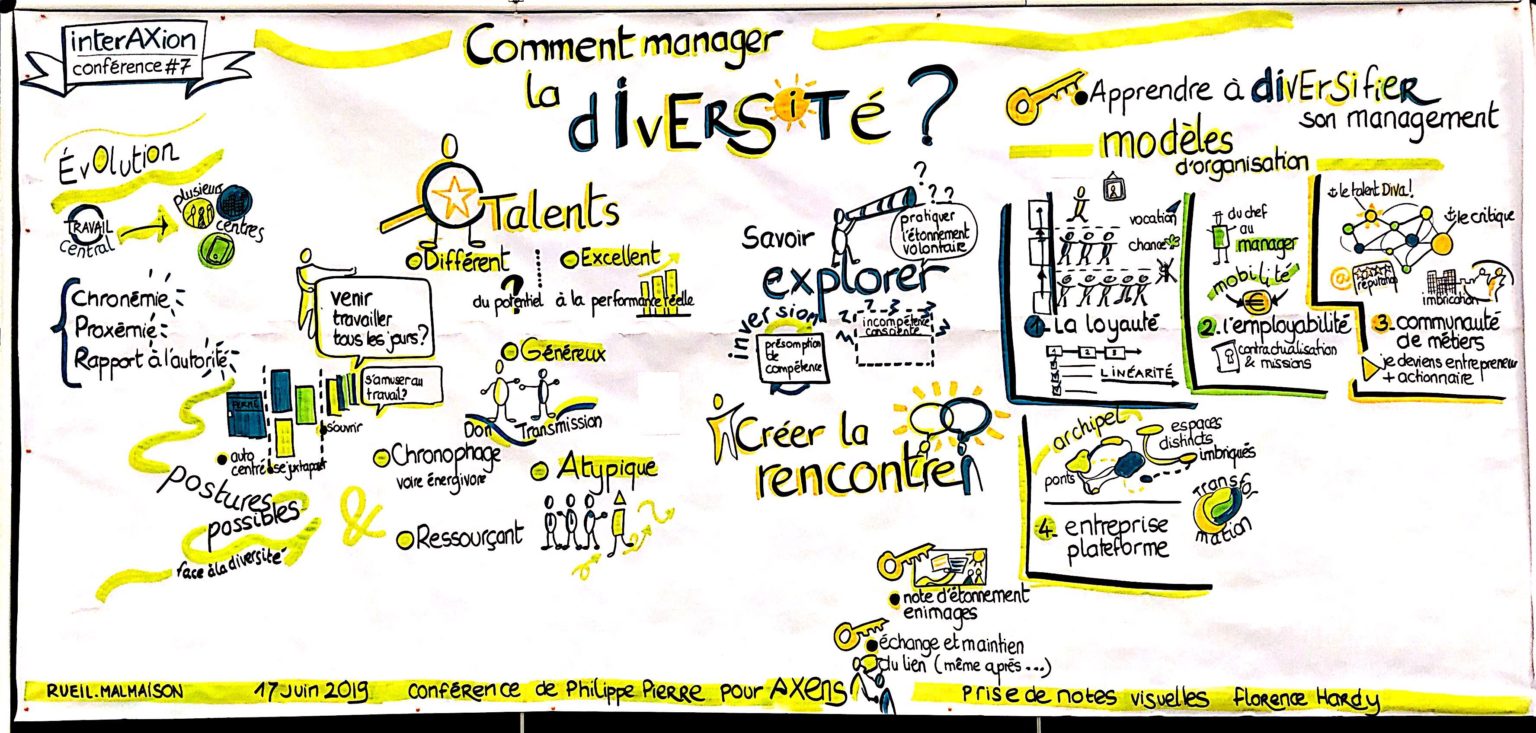 interAXion
conférence #7
Comment manager
la
diVERSiTé ?
Évolution
TRAVAIL
central
plusieurs
centres
Chronémie
Proxémie
Rapport à l'autorité
venir
travailler
tous les jours?
s'amuser au
travail?
FERMÉ
s'ouvrir
auto
centré
se juxtaposer
postures
possibles
face à la diversité
&
Talents
Différent
Excellent
?
du potentiel à la performance réelle
Généreux
Don
Transmission
Chronophage
voire énergivore
Atypique
Ressourçant
Savoir
explorer
? ? ?
pratiquer
l'étonnement
volontaire
inversion
présomption
de
compétence
incompétence
consciente
Créer la
rencontre
note d'étonnement
en images
échange et maintien
du lien (même après...)
Apprendre à diVErSifiER
son management
modèles
d'organisation
vocation
chance
1. La loyauté
1 2 3
LINÉARITÉ
du chef
au
manager
mobilité
€
2. l'employabilité
contractualisation
& missions
le talent Diva!
le critique
@
réputation
imbrication
3. communauté
de métiers
je deviens entrepreneur
+ actionnaire
archipel
ponts
espaces
distincts
imbriqués
4. entreprise
plateforme
Transfor
mation
RUEIL.MALMAISON
17 Juin 2019
Conférence de Philippe Pierre pour AXENS
Prise de notes visuelles Florence Hardy